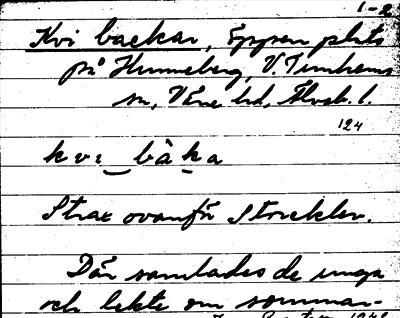 1-2
Kvi backar, öppen plats
på Hunneberg, V. Tunhems
sn, Väne hd, Älvsb. l.
124
kvi bàka
Strax ovanför Storeklev.
Där samlades de unga
och lekte om sommar-